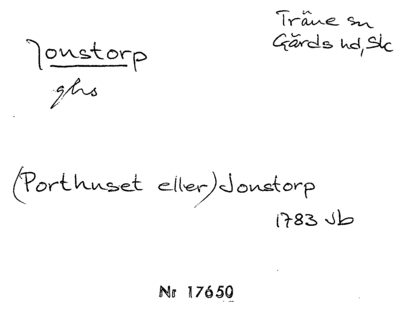 Jonstorp
ghs
Träne sn
Gärds hd, Sk
(Porthuset eller) Jonstorp
1783 Jb
Nr 17650